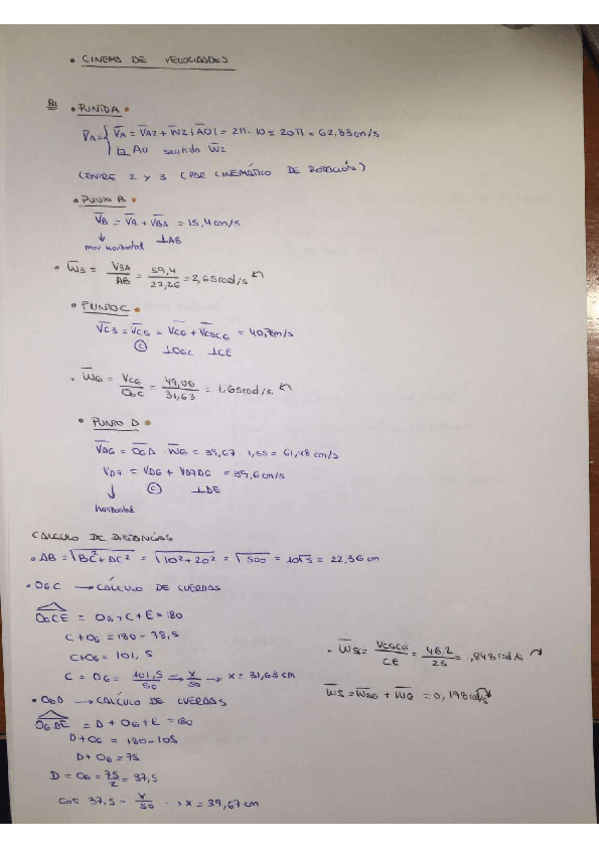 • CINEMA DE VELOCIDADES
• PUNTO A •
V̄A = V̄A2 + W̄2 |AO| = 2π · 10 = 20π = 62,83 cm/s
AO sentido W̄2
(ENTRE 2 y 3 (PAR CINEMÁTICO DE ROTACIÓN)
• PUNTO B •
V̄B = V̄A + V̄BA = 15,4 cm/s
↓ ⊥AB
mov horizontal
• W̄3 = VBA / AB = 59,4 / 22,26 = 2,65 rad/s
• PUNTO C •
V̄C3 = V̄C5 = V̄C6 + V̄C5C6 = 40,7 cm/s
⊥O6C ⊥CE
• W̄6 = VC6 / O6C = 49,06 / 31,63 = 1,65 rad/s
• PUNTO D •
V̄D6 = O6D · W̄6 = 39,67 · 1,55 = 61,48 cm/s
VD7 = VD6 + VD7D6 = 39,6 cm/s
↓ ⊥DE
horizontal
CALCULO DE DISTANCIAS
• AB = √BC² + AC² = √10² + 20² = √500 = 10√5 = 22,36 cm
• O6C → CÁLCULO DE CUERDAS
O6CE = O6 + C + E = 180
C + O6 = 180 - 78,5
C + O6 = 101,5
C = O6 = 101,5 / 50 → x / 50 → x = 31,63 cm
• O6D → CALCULO DE CUERDAS
O6DE = D + O6 + E = 180
D + O6 = 180 - 105
D + O6 = 75
D = O6 = 75 / 2 = 37,5
cos 37,5 = x / 50 → x = 39,67 cm
• W̄56 = VC5C6 / CE = 46,2 / 25 = 1,848 rad/s
W̄5 = W̄56 + W̄6 = 0,198 rad/s